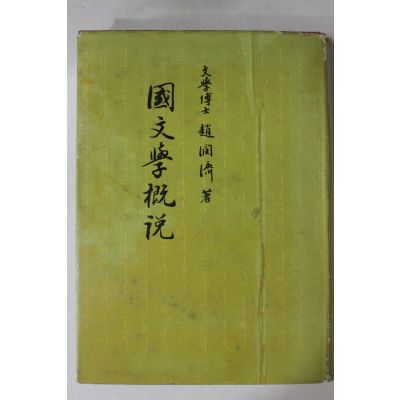 文學博士 趙潤濟 著
國文學概説